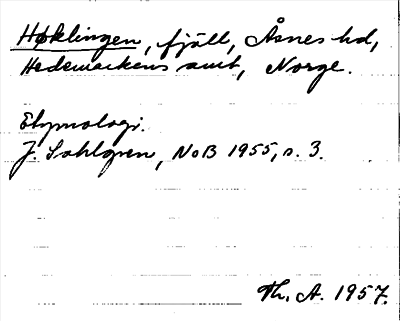 Høklingen, fjäll, Åsnes hd,
Hedemarkens amt, Norge.
Etymologi.
J. Sahlgren, NoB 1955, s. 3.
Th. A. 1957.